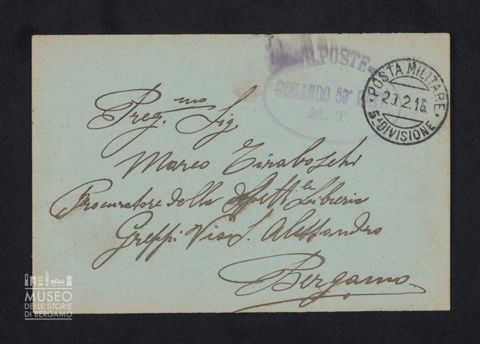 POSTE
COMANDO 53°
M. T.
POSTA MILITARE
29.2.16.
5ª DIVISIONE
Preg.mo Sig.
Marco Tiraboschi
Procuratore della Spett.le Libreria
Greppi Via S. Alessandro
Bergamo
MUSEO
DELLE STORIE
DI BERGAMO